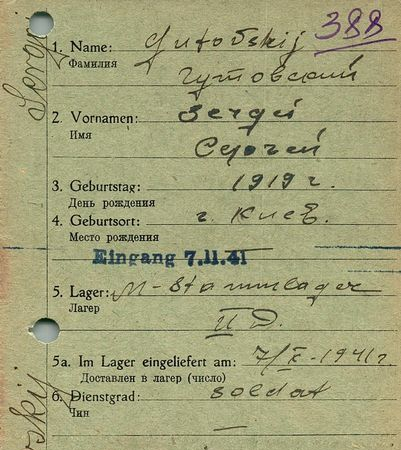 388
1. Name: Gutovskij
Фамилия
Гутовский
2. Vornamen: Sergej
Имя
Сергей
3. Geburtstag: 1919 г.
День рождения
4. Geburtsort: г. Киев.
Место рождения
Eingang 7.11.41
5. Lager: M-Stammlager
Лагерь
II D.
5a. Im Lager eingeliefert am: 1941 г.
Доставлен в лагерь (число)
6. Dienstgrad: Soldat
Чин
—